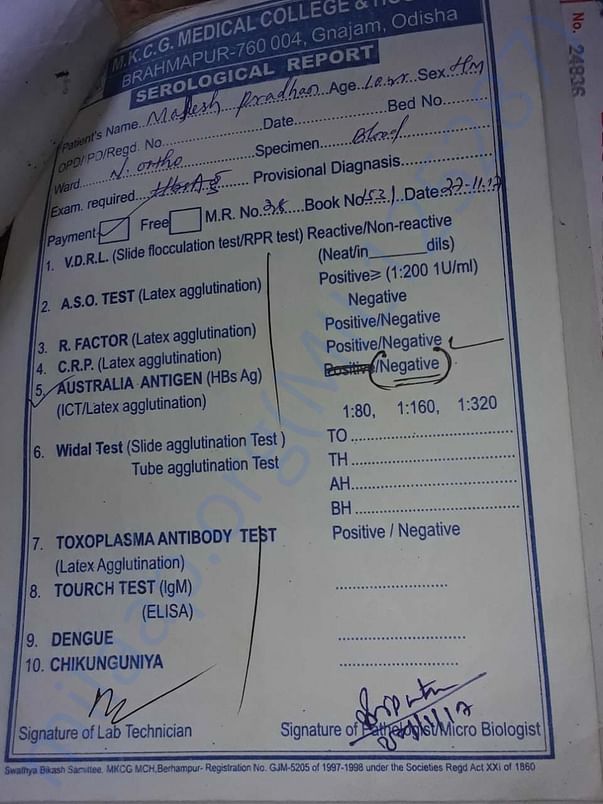 M.K.C.G. MEDICAL COLLEGE &
BRAHMAPUR-760 004, Gnajam, Odisha
SEROLOGICAL REPORT
No. 24836
Patient's Name Mahesh Pradhan Age Sex
OPD/IPD/Regd. No. Date Bed No.
Ward N. ortho Specimen Blood
Exam. required HBsAg Provisional Diagnosis
Payment Free M.R. No. 38 Book No 1531 Date 22-11-17
1. V.D.R.L. (Slide flocculation test/RPR test) Reactive/Non-reactive
(Neat/in______dils)
2. A.S.O. TEST (Latex agglutination) Positive≥ (1:200 1U/ml)
Negative
3. R. FACTOR (Latex agglutination) Positive/Negative
4. C.R.P. (Latex agglutination) Positive/Negative
5. AUSTRALIA ANTIGEN (HBs Ag) Positive/Negative
(ICT/Latex agglutination)
1:80, 1:160, 1:320
6. Widal Test (Slide agglutination Test ) TO
Tube agglutination Test TH
AH
BH
7. TOXOPLASMA ANTIBODY TEST Positive / Negative
(Latex Agglutination)
8. TOURCH TEST (IgM)
(ELISA)
9. DENGUE
10. CHIKUNGUNIYA
Signature of Lab Technician Signature of Pathologist/Micro Biologist
Swathya Bikash Samittee, MKCG MCH,Berhampur- Registration No. GJM-5205 of 1997-1998 under the Societies Regd Act XXi of 1860